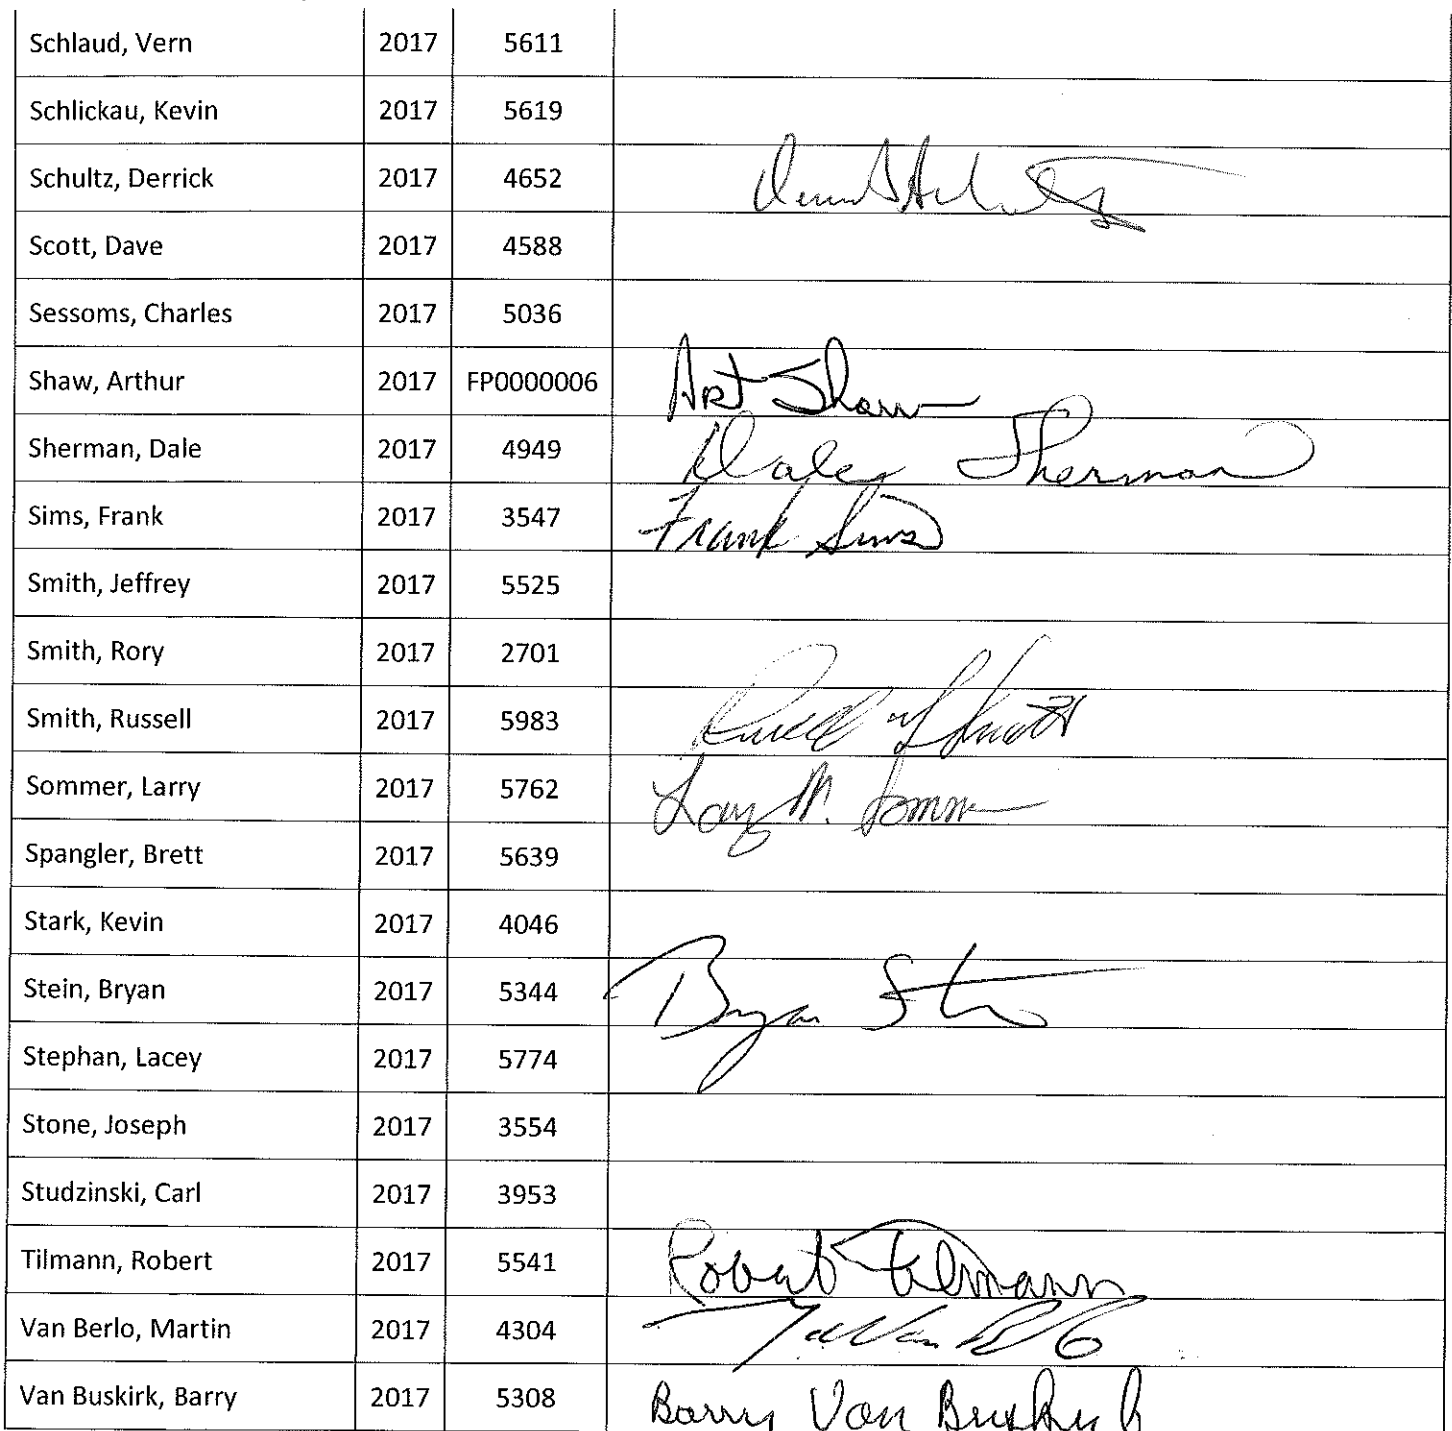 Schlaud, Vern 2017 5611
Schlickau, Kevin 2017 5619
Schultz, Derrick 2017 4652
Scott, Dave 2017 4588
Sessoms, Charles 2017 5036
Shaw, Arthur 2017 FP0000006 Art Shaw
Sherman, Dale 2017 4949 Dale Sherman
Sims, Frank 2017 3547 Frank Sims
Smith, Jeffrey 2017 5525
Smith, Rory 2017 2701
Smith, Russell 2017 5983
Sommer, Larry 2017 5762 Larry M.
Spangler, Brett 2017 5639
Stark, Kevin 2017 4046
Stein, Bryan 2017 5344 Bryan
Stephan, Lacey 2017 5774
Stone, Joseph 2017 3554
Studzinski, Carl 2017 3953
Tilmann, Robert 2017 5541 Robert Tilmann
Van Berlo, Martin 2017 4304
Van Buskirk, Barry 2017 5308 Barry Van Buskirk